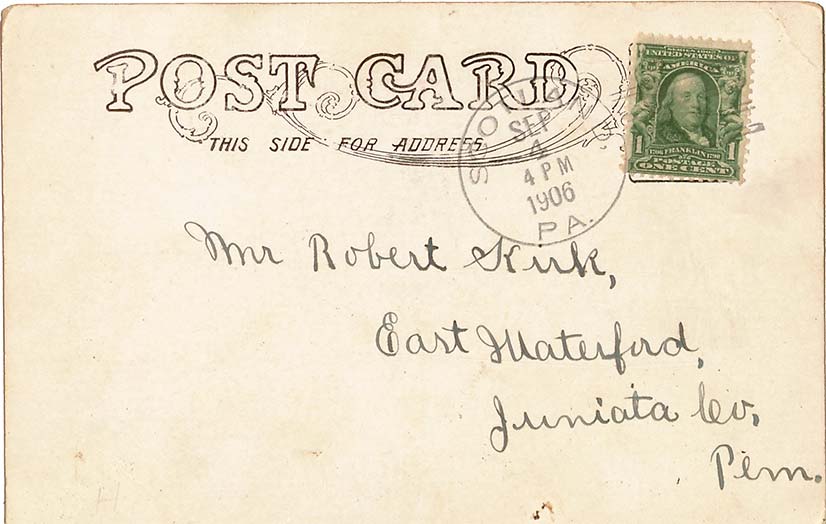 POST CARD
THIS SIDE FOR ADDRESS.
SCOTLAND
SEP
1
4 PM
1906
PA.
SERIES 1902
UNITED STATES OF
AMERICA
1 1706 FRANKLIN 1790 1
POSTAGE
ONE CENT
Mr Robert Kirk,
East Waterford,
Juniata Co,
Penn.